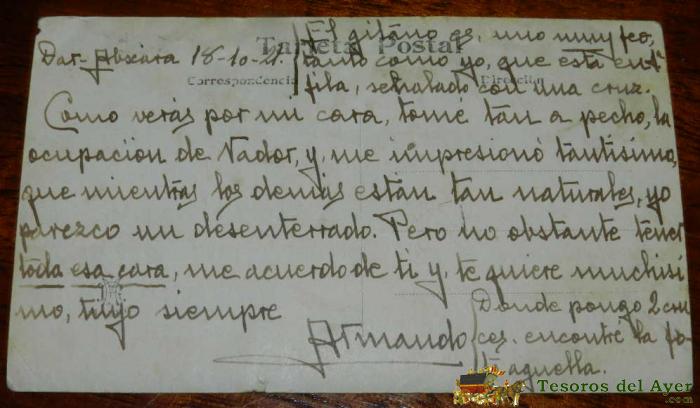 El gitano es, uno muy feo,
Tarjeta Postal
Dar-Abxiara 18-10-21.
tanto como yo, que está en 1ª
Correspondencia
Dirección
fila, señalado con una cruz.
Como verás por mi cara, tomé tan a pecho, la
ocupación de Nador, y, me impresionó tantísimo,
que mientras los demás están tan naturales, yo
parezco un desenterrado. Pero no obstante tener
toda esa cara, me acuerdo de ti y, te quiere muchísi
mo, tuyo siempre
Armando
Donde pongo 2 cru
ces. encontré la fo
tº aquella.
Tesoros del Ayer
.com